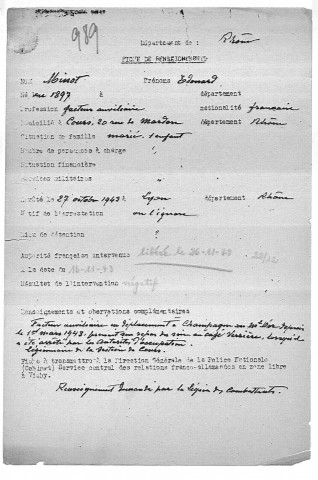 989
Département de : Rhône
FICHE DE RENSEIGNEMENTS
Nom Minot Prénoms Edouard
Né en 1897 à département
Profession facteur auxiliaire nationalité française
Domicilié à Cours, 20 rue de Mardon département Rhône
Situation de famille marié 1 enfant
Nombre de personnes à charge
Situation financière
Services militaires
Arrêté le 27 octobre 1943 à Lyon département Rhône
Motif de l'arrestation on l'ignore
Lieu de détention ?
Autorité française intervenue le 26-11-43
A la date du 16-11-43
Résultat de l'intervention négatif
Renseignements et observations complémentaires
Facteur auxiliaire en déplacement à Champagne au Mt d'Or depuis
le 1er mars 1943. prenait son repas du soir au café Verrière, lorsqu'il
a été arrêté par les Autorités d'occupation.
Légionnaire de la Section de Cours.
Fiche à transmettre à la Direction Générale de la Police Nationale
(Cabinet) Service central des relations franco-allemandes en zone libre
à Vichy.
Renseignement demandé par la Légion des Combattants.